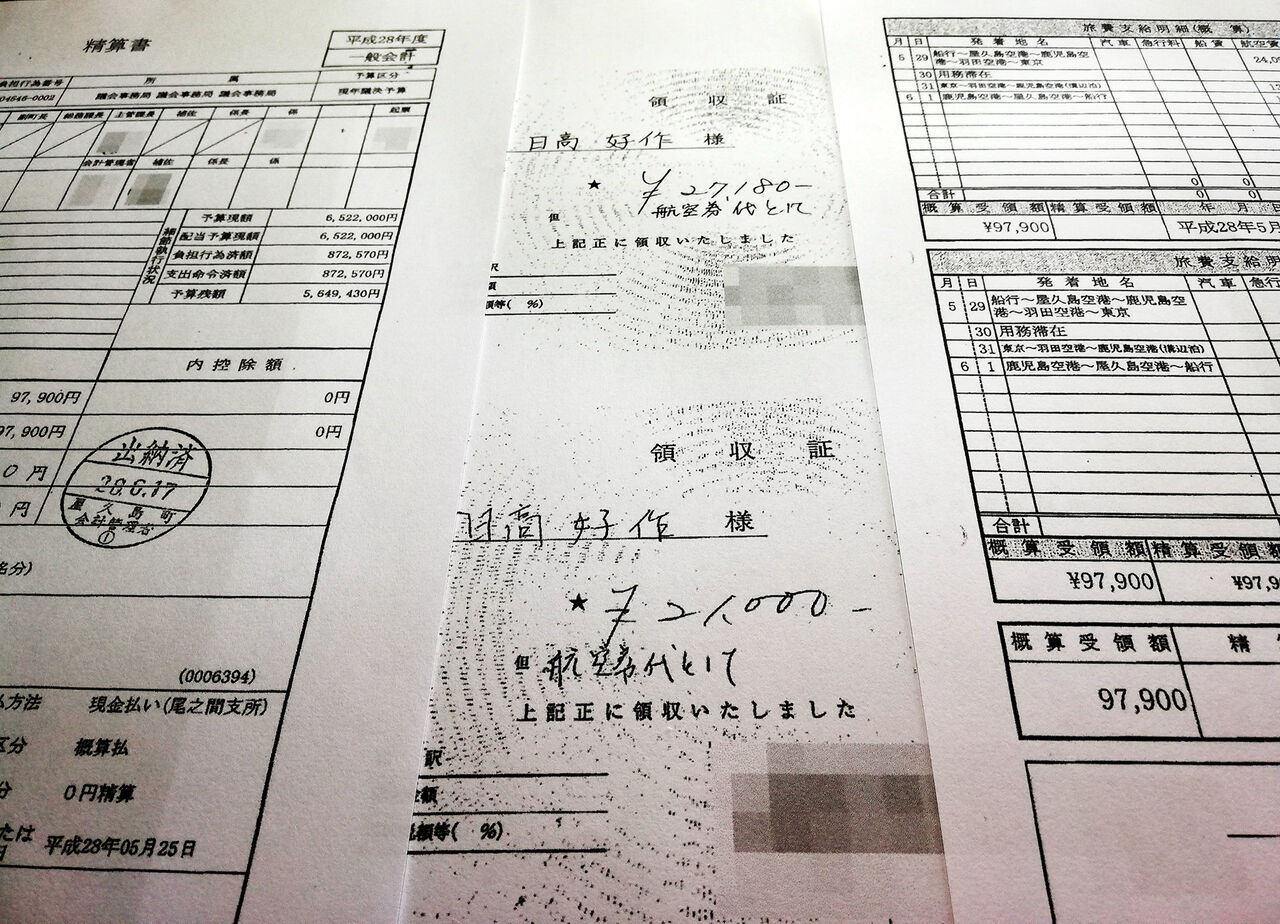 精算書
平成28年度
一般会計
負担行為番号
所 属
予算区分
04646-0002
議会事務局 議会事務局 議会事務局
現年議決予算
副町長
総務課長
主管課長
補佐
係長
係
起票
会計管理者
補佐
係長
係
細節執行状況
予算現額 6,522,000円
配当予算現額 6,522,000円
負担行為済額 872,570円
支出命令済額 872,570円
予算残額 5,649,430円
内控除額
97,900円 0円
97,900円 0円
0円
円
出納済
28.6.17
屋久島町
会計管理者
①
名分)
(0006394)
払方法 現金払い(尾之間支所)
区分 概算払
分 0円精算
たは
日 平成28年05月25日
領収証
日高 好作 様
★ ¥27,180-
但 航空券代として
上記正に領収いたしました
訳
額
額等( %)
領収証
日高 好作 様
★ ¥21,000-
但 航空券代として
上記正に領収いたしました
訳
金額
税額等( %)
旅費支給明細(概算)
月 日 発着地名 汽車 急行料 船賃 航空賃
5 29 船行～屋久島空港～鹿児島空港～羽田空港～東京
30 用務滞在
31 東京～羽田空港～鹿児島空港(溝辺泊)
6 1 鹿児島空港～屋久島空港～船行
0 0
合計 0 0
概算受領額 精算受領額 年 月
¥97,900 平成28年5月
旅費支給明
月 日 発着地名 汽車 急行
5 29 船行～屋久島空港～鹿児島空
港～羽田空港～東京
30 用務滞在
31 東京～羽田空港～鹿児島空港(溝辺泊)
6 1 鹿児島空港～屋久島空港～船行
合計
概算受領額 精算受領額
¥97,900 ¥97,9
概算受領額 精
97,900